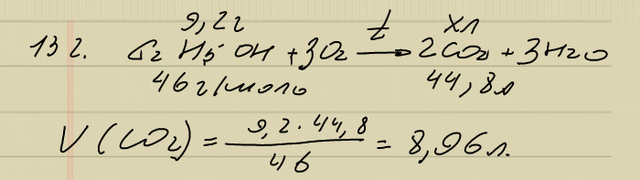 9,2г t xл
13 г. C₂H₅OH + 3O₂ → 2CO₂ + 3H₂O
46 г/моль 44,8л
V(CO₂) = 9,2·44,8 / 46 = 8,96 л.